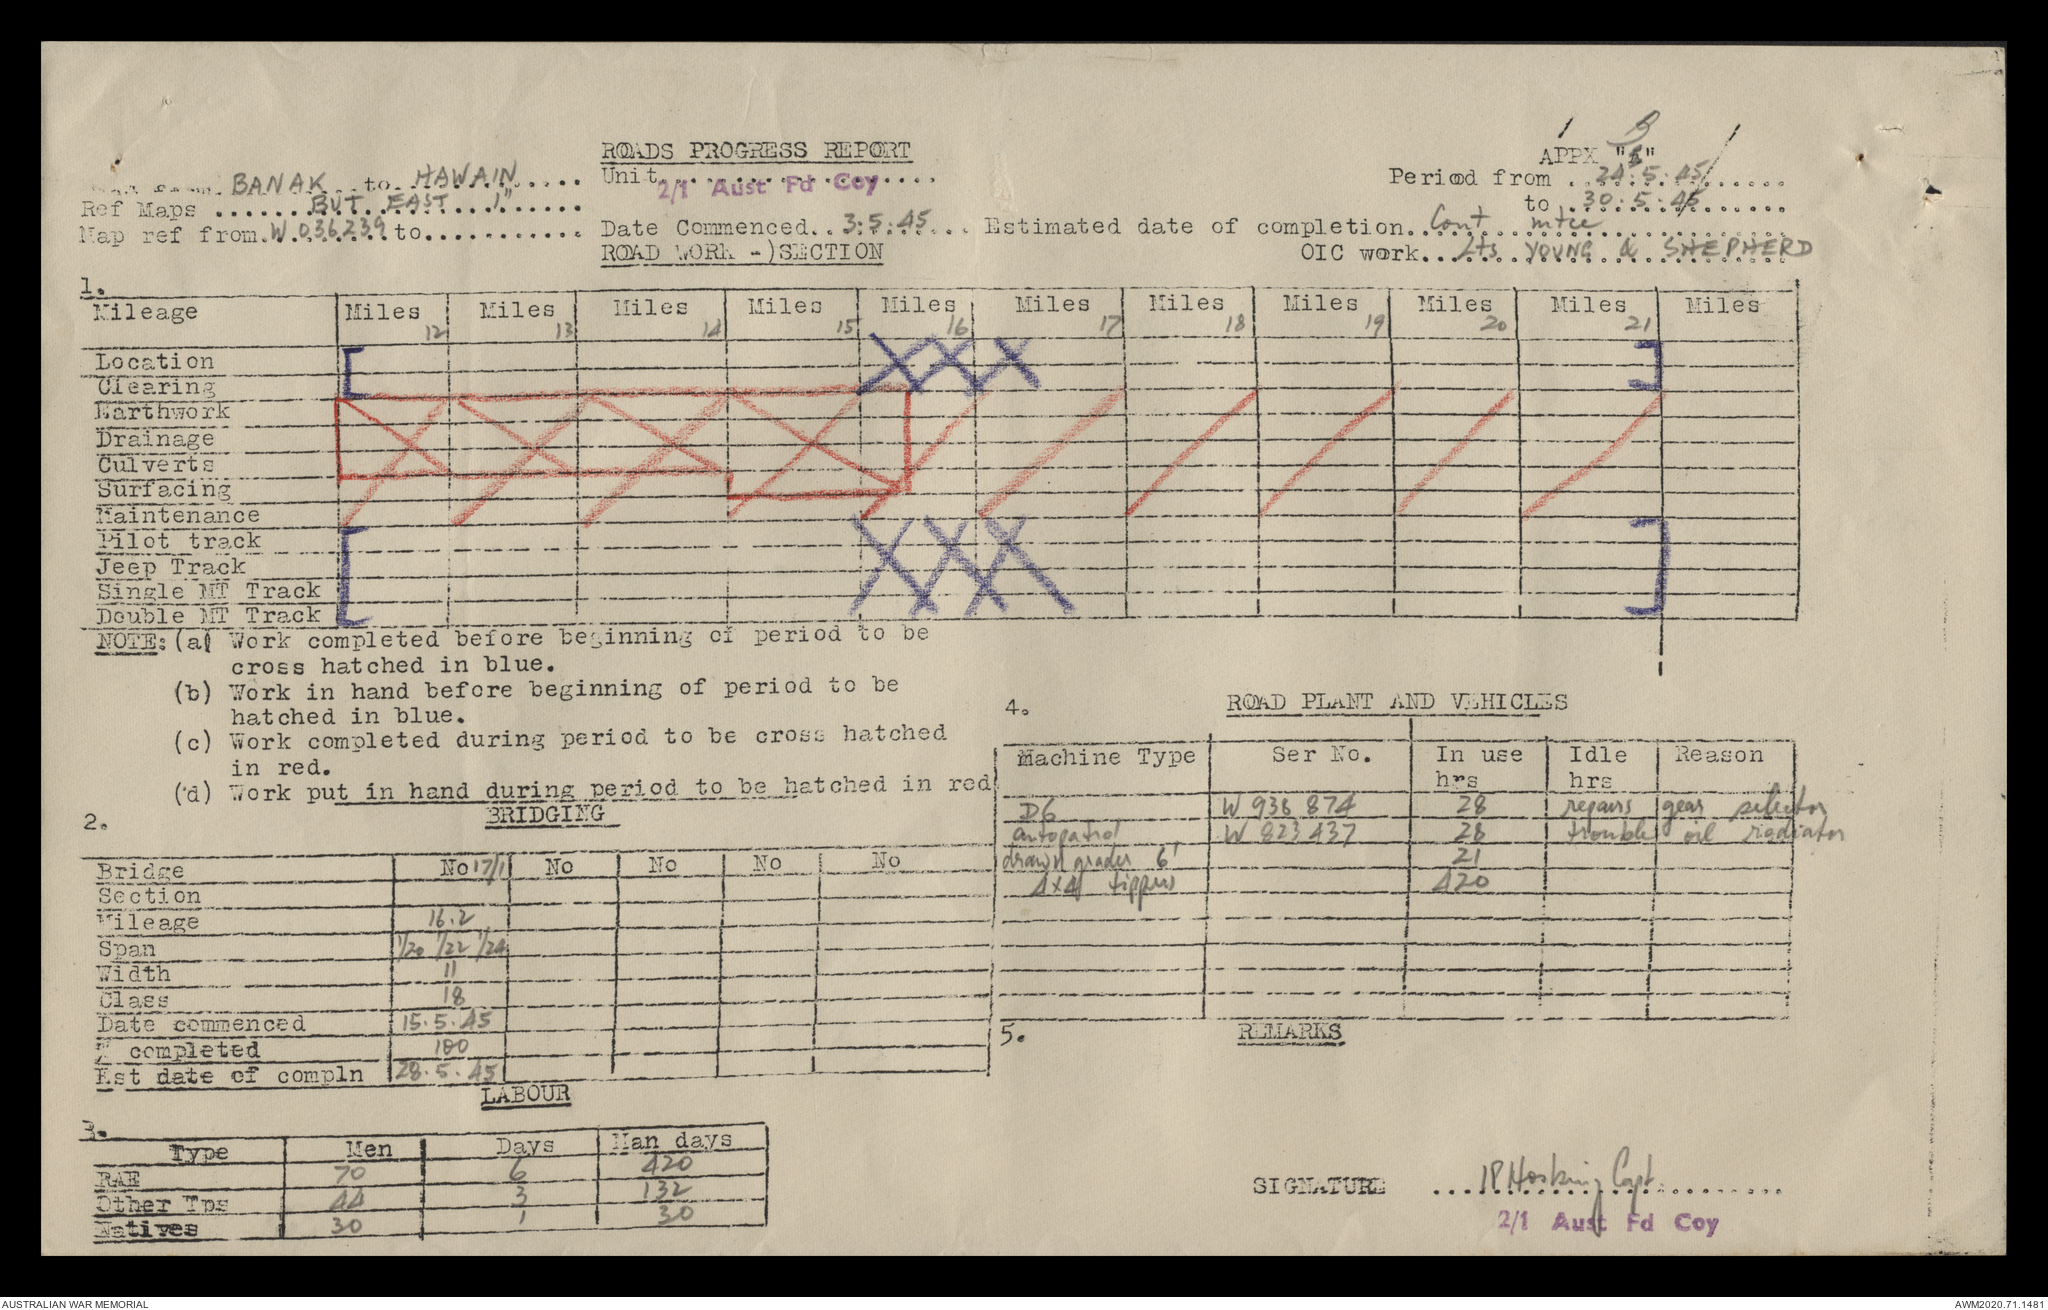 ROADS PROGRESS REPORT
APPX "B"
from BANAK to HAWAIN
Unit 2/1 Aust Fd Coy
Period from 24.5.45
to 30.5.45
Ref Maps BUT EAST 1"
Map ref from W 036239 to
Date Commenced 3.5.45 Estimated date of completion Cont mtce
ROAD WORK -)SECTION
OIC work Lts YOUNG & SHEPHERD
1.
Mileage Miles 12 Miles 13 Miles 14 Miles 15 Miles 16 Miles 17 Miles 18 Miles 19 Miles 20 Miles 21 Miles
Location
Clearing
Earthwork
Drainage
Culverts
Surfacing
Maintenance
Pilot track
Jeep Track
Single MT Track
Double MT Track
NOTE: (a) Work completed before beginning of period to be
cross hatched in blue.
(b) Work in hand before beginning of period to be
hatched in blue.
(c) Work completed during period to be cross hatched
in red.
(d) Work put in hand during period to be hatched in red
2.
BRIDGING
Bridge No 17/1 No No No No
Section
Mileage 16.2
Span 1/20 1/22 1/24
Width 11
Class 18
Date commenced 15.5.45
% completed 100
Est date of compln 28.5.45
LABOUR
3.
Type Men Days Man days
RAE 70 6 420
Other Tps 44 3 132
Natives 30 1 30
4.
ROAD PLANT AND VEHICLES
Machine Type Ser No. In use hrs Idle hrs Reason
D6 W 938 874 28 repairs gear selector
autopatrol W 823437 28 trouble oil radiator
drawn grader 6' 21
4x4 tippers 420
5.
REMARKS
SIGNATURE Hosking Capt.
2/1 Aust Fd Coy
AUSTRALIAN WAR MEMORIAL
AWM2020.71.1481